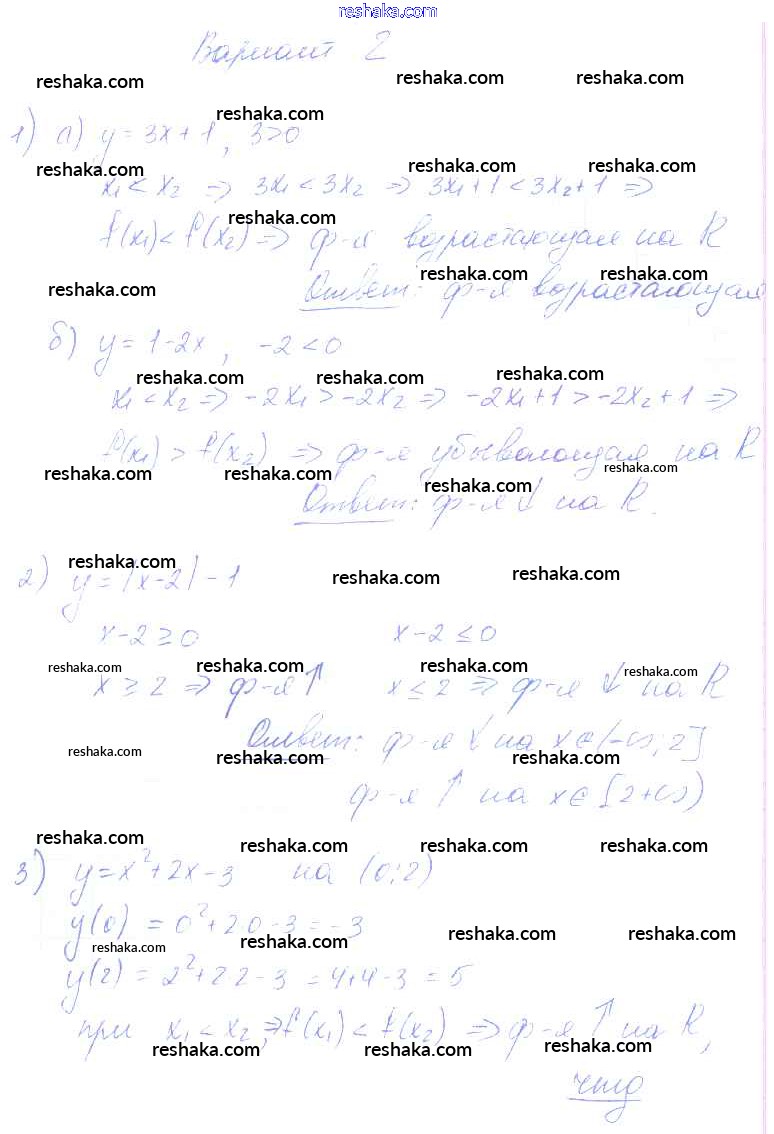 reshaka.com
Вариант 2
reshaka.com reshaka.com reshaka.com
reshaka.com
1) а) y = 3x + 1, 3>0
reshaka.com reshaka.com reshaka.com
x₁ < x₂ => 3x₁ < 3x₂ => 3x₁+1 < 3x₂+1 =>
reshaka.com
f(x₁) < f(x₂) => ф-я возрастающая на R
reshaka.com reshaka.com reshaka.com
Ответ: ф-я возрастающая
б) y = 1-2x, -2<0
reshaka.com reshaka.com reshaka.com
x₁ < x₂ => -2x₁ > -2x₂ => -2x₁+1 > -2x₂+1 =>
f(x₁) > f(x₂) => ф-я убывающая на R
reshaka.com reshaka.com reshaka.com reshaka.com
Ответ: ф-я ↓ на R.
reshaka.com reshaka.com reshaka.com
2) y = |x-2| - 1
x-2 ≥ 0 x-2 ≤ 0
reshaka.com reshaka.com reshaka.com reshaka.com
x ≥ 2 => ф-я ↑ x ≤ 2 => ф-я ↓ на R
Ответ: ф-я ↓ на x∈(-∞; 2]
reshaka.com reshaka.com reshaka.com
ф-я ↑ на x∈[2+∞)
reshaka.com reshaka.com reshaka.com reshaka.com
3) y = x²+2x-3 на (0;2)
y(0) = 0²+2·0-3 = -3
reshaka.com reshaka.com reshaka.com reshaka.com
y(2) = 2²+2·2-3 = 4+4-3 = 5
при x₁ < x₂, => f(x₁) < f(x₂) => ф-я ↑ на R,
reshaka.com reshaka.com reshaka.com
чтд